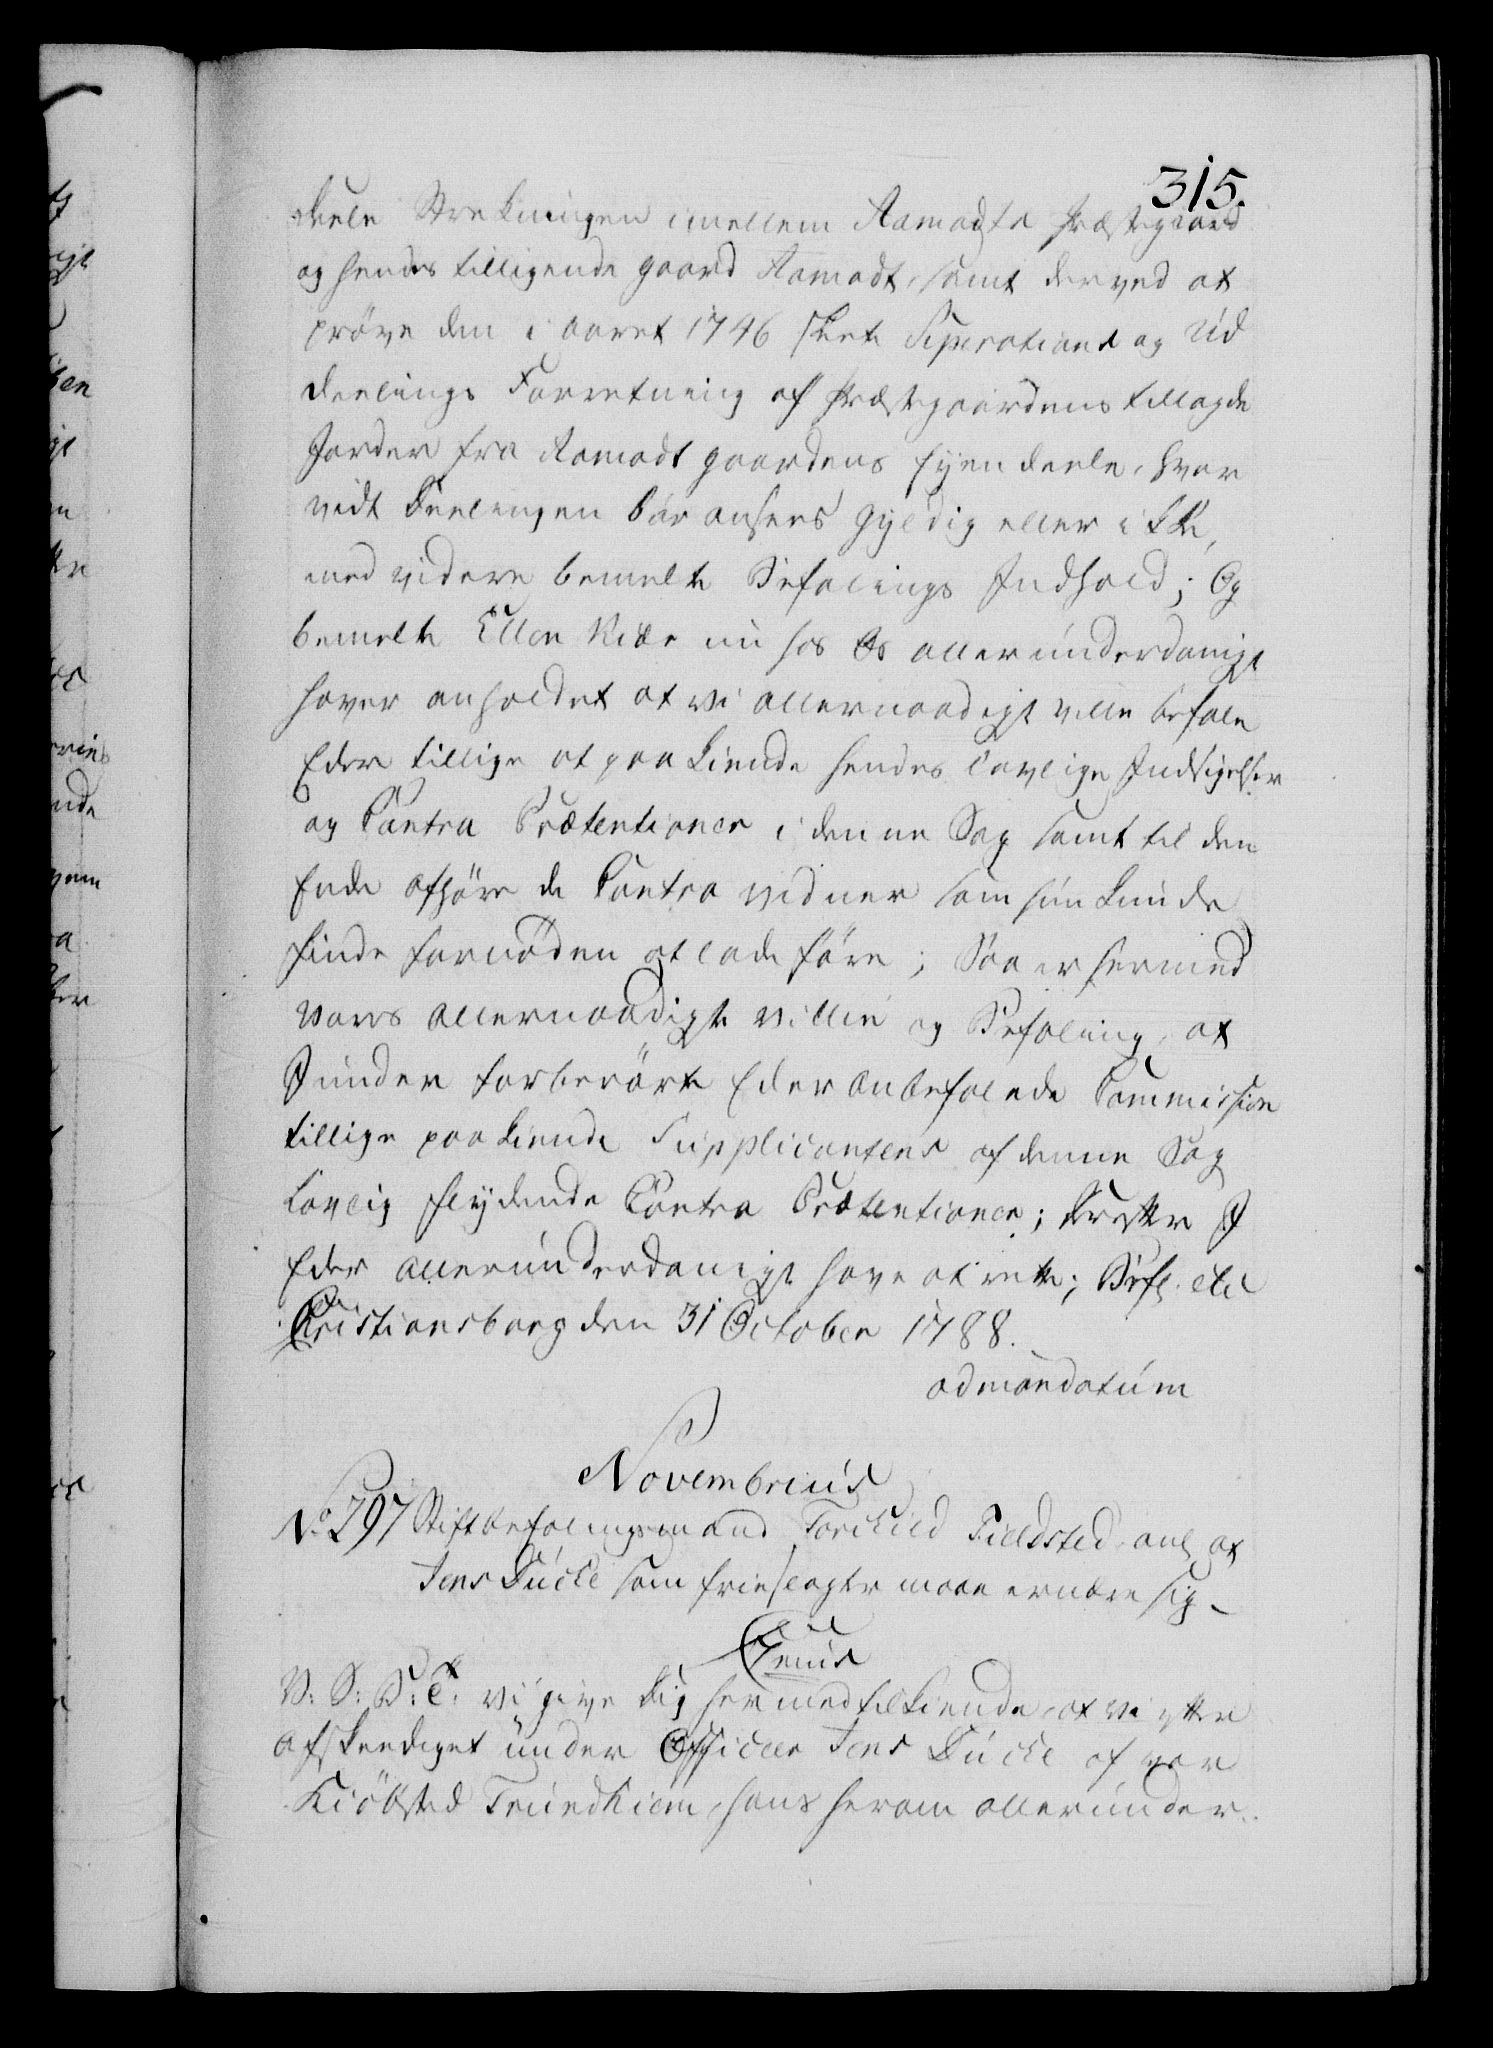 315.
deele Strekningen imellem Aamodts Præstegaard
og hendes tilliigende gaard Aamodt, samt derved at
prøve den i aaret 1746 skete Seperations og Ud
deelings Forretning af Præstegaardens tillagde
Jorder fra Aamodt gaardens Ejendeele, hvor
vidt deelingen bør ansees gyldig eller ikke,
med videre bemelte Befalings Indhold; Og
bemelte Ellen Kiær nu hos Os allerunderdanigst
haver anholdet at vi allernaadigst ville befale
Eder tillige at paakiende hendes lovlige Indsigelser
og Contra Prætentioner i denne Sag samt til den
Ende afhøre de Contra vidner som hun kunde
finde fornøden at lade føre; Saa er hermed
Vores allernaadigste Villie og Befaling, at
I under forberørte Eder anbefalede Commission
tillige paakiende Supplicantens af denne Sag
lovlig flydende Contra Prætentioner; Derefter I
Eder allerunderdanigst have at rette; Befl. etc
Christiansborg den 31 October 1788.
ad mandatum
Novembrius
No 297 Stiftbefalingsmand Torchild Fieldsted anl at
Jens Lücke som frieslagter maae ernære sig
Genus
V: S: G: T: Vi give dig hermed tilkiende, at vi efter
afskediget under Officeer Jens Lücke af vor
Kiøbsted Trundhiem, hans herom allerunder-